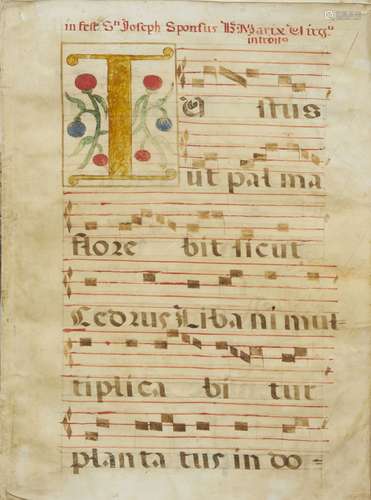 in fest Sn Joseph Sponsus B Mariæ Virg
introit9
I U stus
ut pal ma
flore bit sicut
Cedrus Liba ni mul-
tiplica bi tur
planta tus in do-